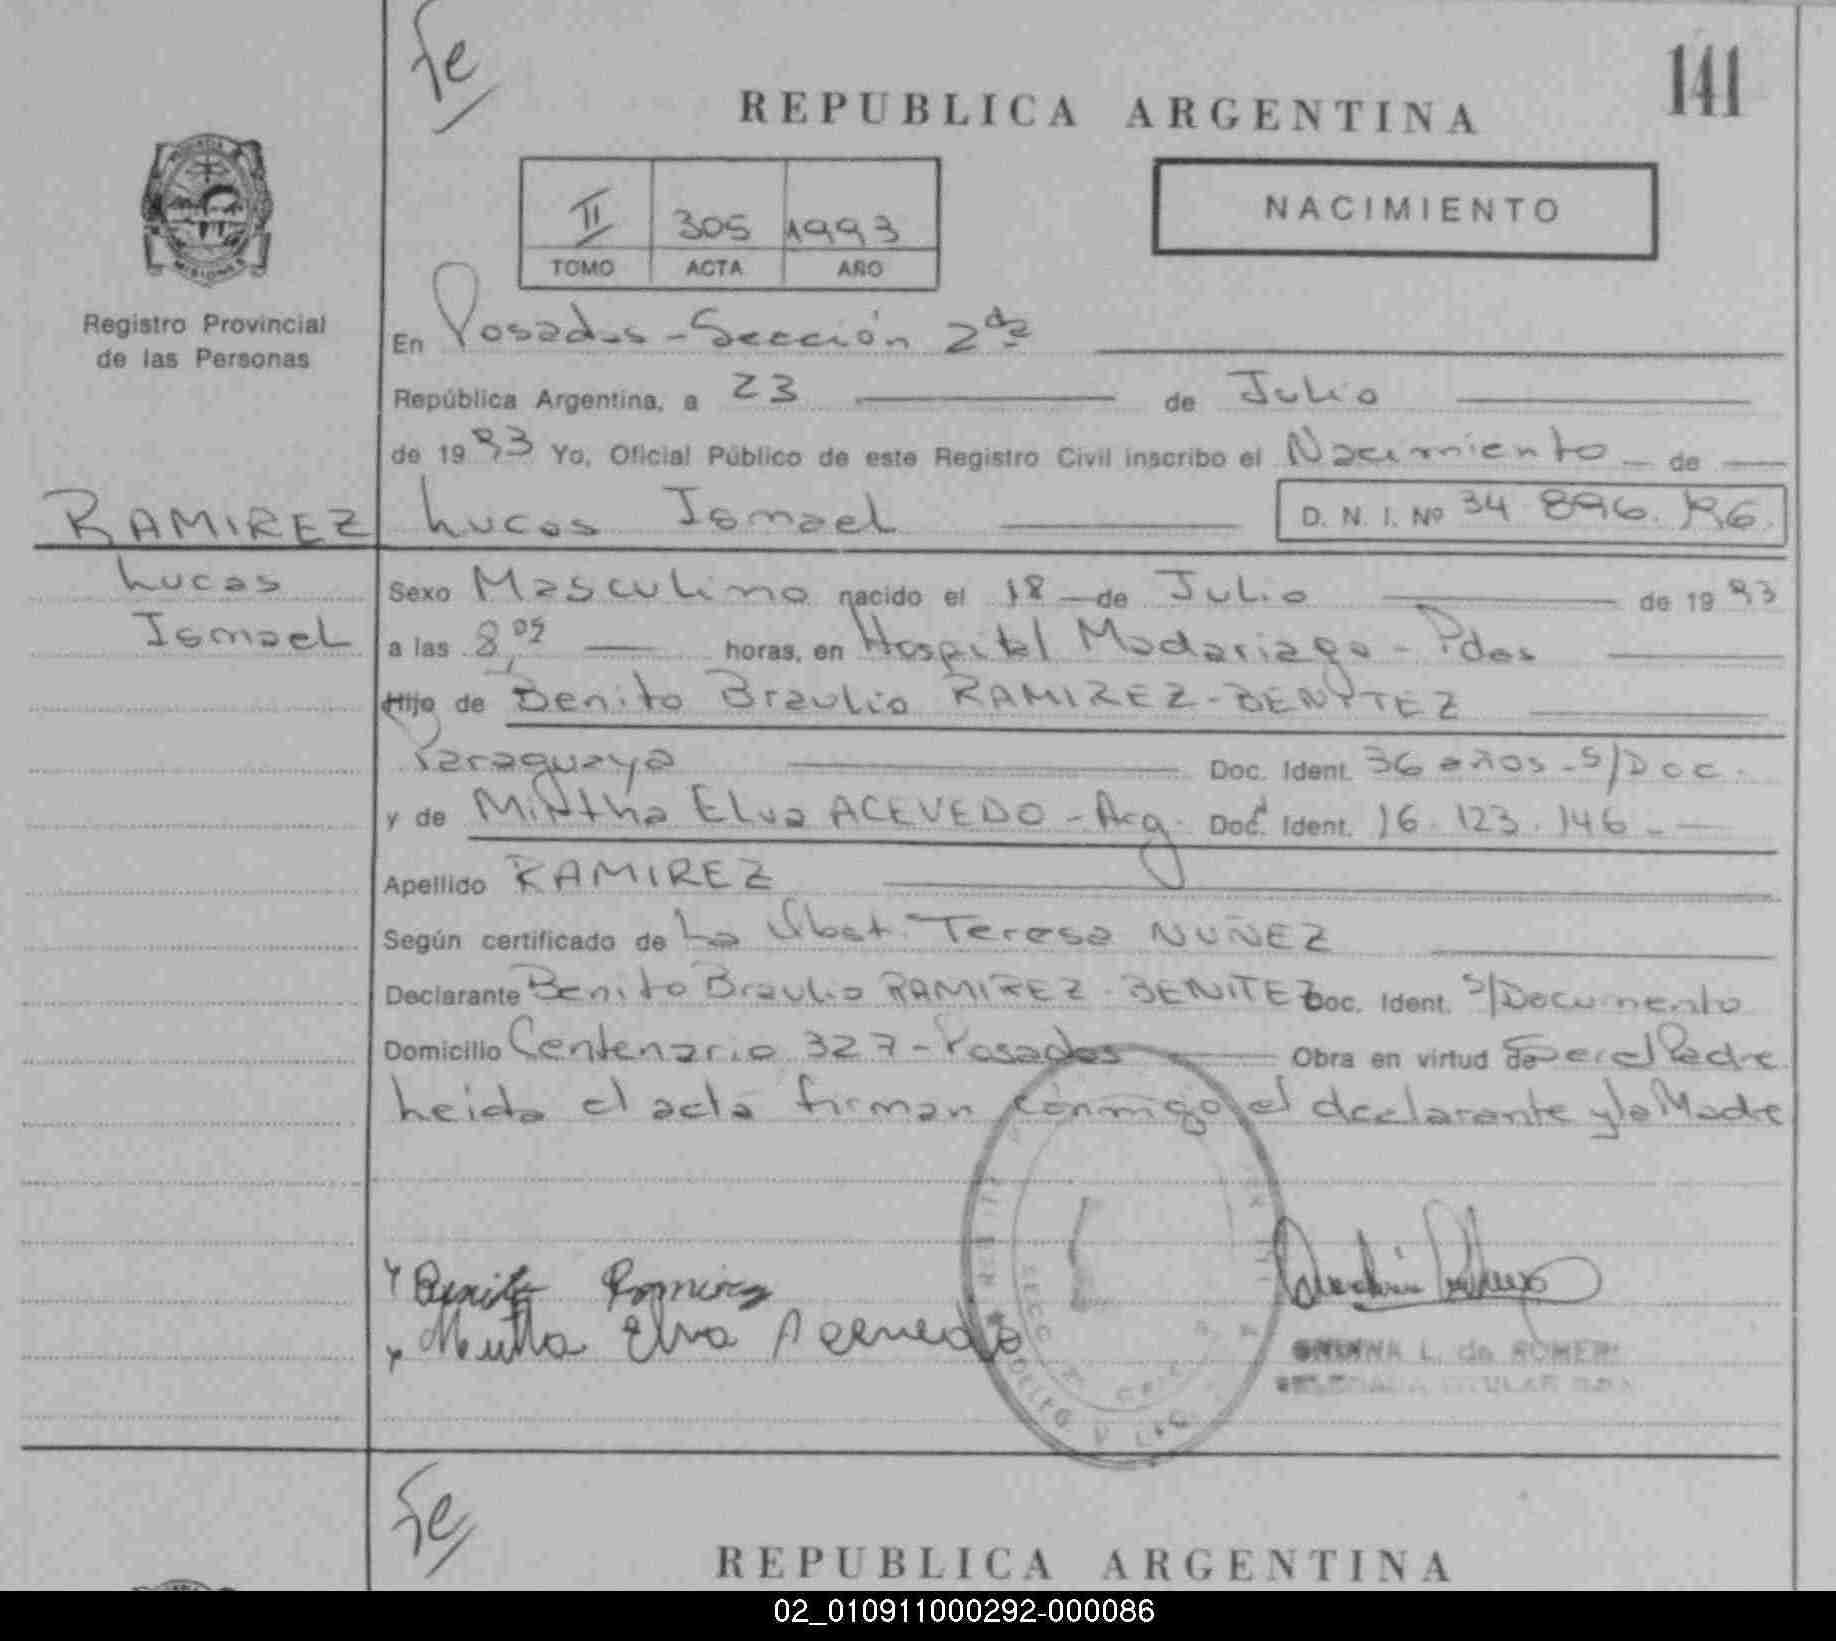 Fe
141
REPUBLICA ARGENTINA
II 305 1993
TOMO ACTA AÑO
NACIMIENTO
MISIONES
Registro Provincial
de las Personas
En Posadas - Sección 2da
República Argentina, a 23 de Julio
de 1993 Yo, Oficial Público de este Registro Civil inscribo el Nacimiento de
RAMIREZ Lucas Ismael D. N. I. Nº 34.896.
Lucas
Ismael
Sexo Masculino nacido el 18 de Julio de 1993
a las 8,05 horas, en Hospital Madariaga - Pdas
Hijo de Benito Braulio RAMIREZ - BENITEZ
Paraguaya Doc. Ident. 36 años - S/Doc.
y de Mirtha Elva ACEVEDO - Arg. Doc. Ident. 16.123.146
Apellido RAMIREZ
Según certificado de La Obst. Teresa NUÑEZ
Declarante Benito Braulio RAMIREZ - BENITEZ Doc. Ident. S/Documento
Domicilio Centenario 327 - Posadas Obra en virtud de Ser el Padre
Leida el acta firman conmigo el declarante y la Madre
Benito Ramirez
Mirtha Elva Acevedo
L. de ROMERO
TITULAR
Fe
REPUBLICA ARGENTINA
02_010911000292-000086